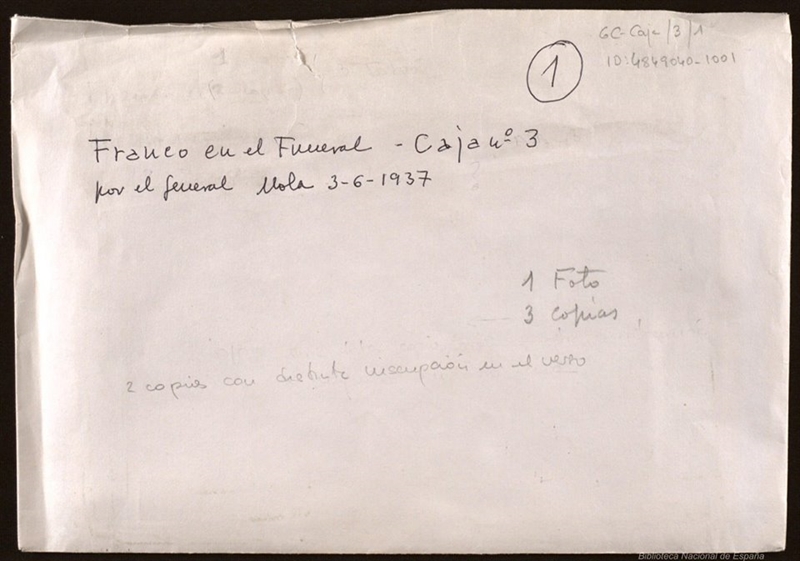 GC-Caja/3/1
ID:4849040-1001
1
Franco en el Funeral - Caja nº 3
por el general Mola 3-6-1937
1 Foto
3 copias
2 copias con distinta inscripción en el verso
Biblioteca Nacional de España